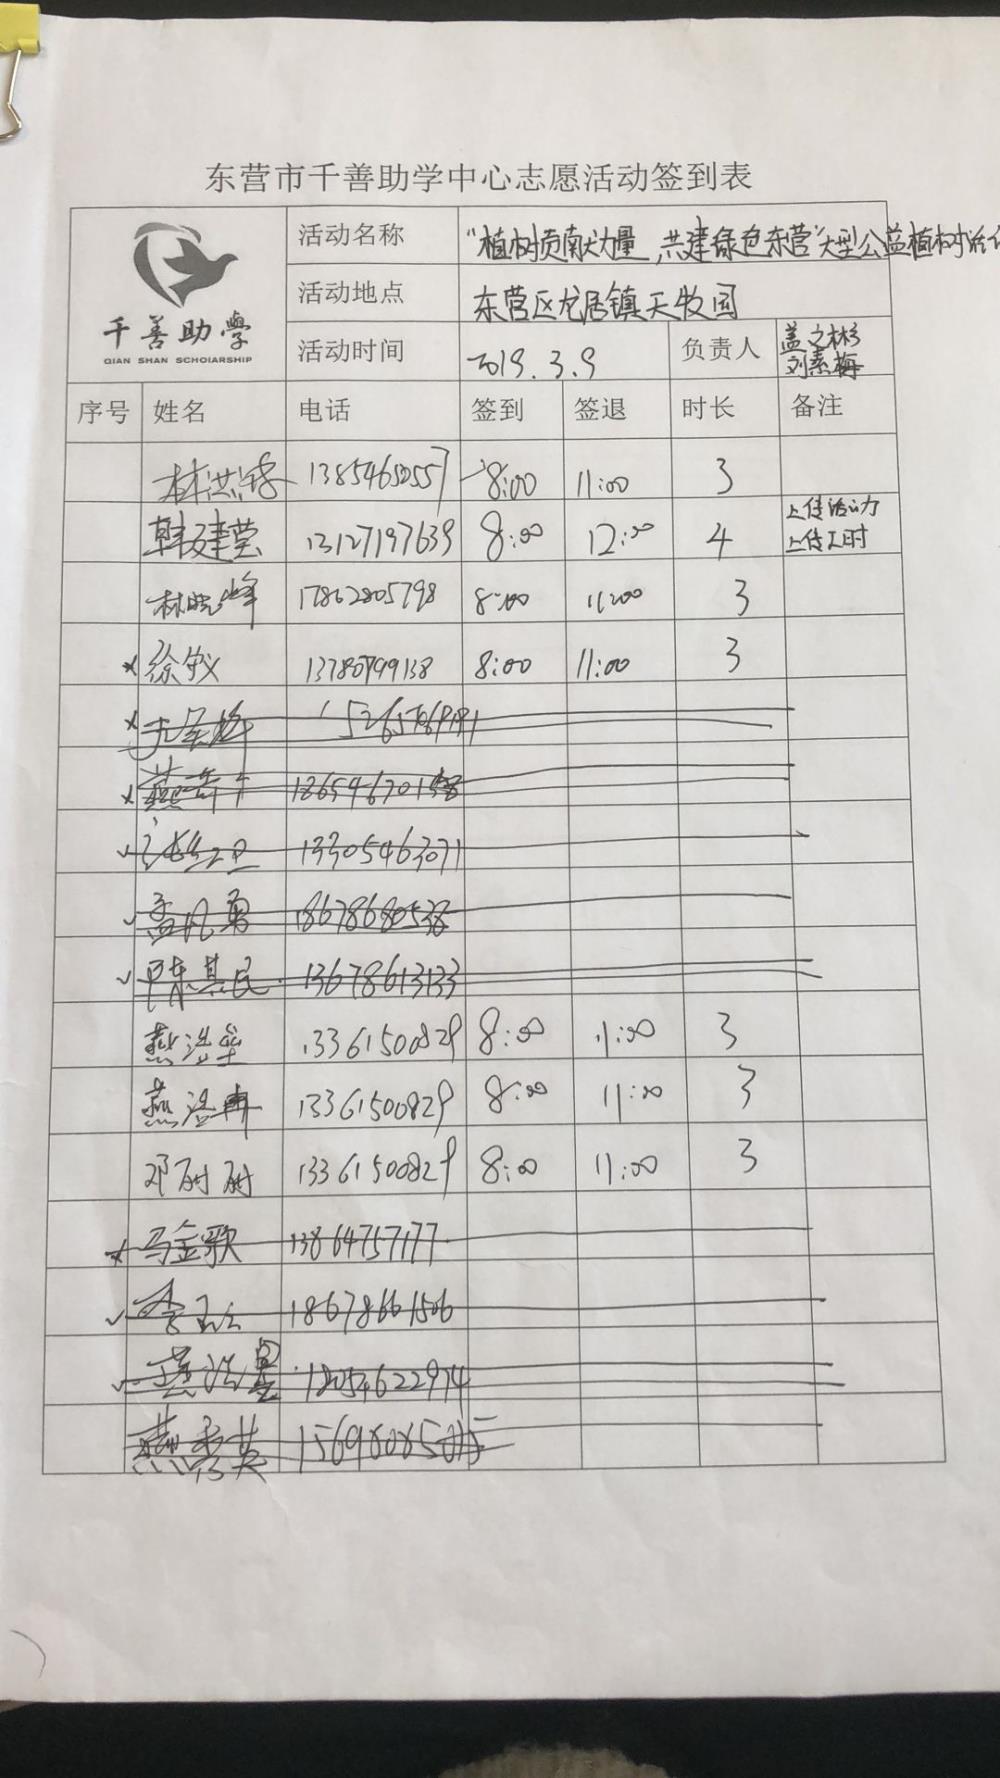 东营市千善助学中心志愿活动签到表
千善助學
QIAN SHAN SCHOIARSHIP
活动名称 “植树贡献力量,共建绿色东营”大型公益植树活
活动地点 东营区龙居镇天牧园
活动时间 2019.3.9 负责人 盖文彬
刘素梅
序号 姓名 电话 签到 签退 时长 备注
林洪 13854650557 8:00 11:00 3
韩建莹 13127197639 8:00 12:00 4 上传活动
上传工时
林晓峰 17862805798 8:00 11:00 3
徐敏 13780799138 8:00 11:00 3
18654670158
13305463071
孟凡勇 18678680538
陈其民 13678613133
燕浩 13361500829 8:00 11:00 3
燕浩冉 13361500829 8:00 11:00 3
邓耐耐 13361500829 8:00 11:00 3
马金歌 13864757177
李 18678661506
燕浩 18054622974
燕秀英